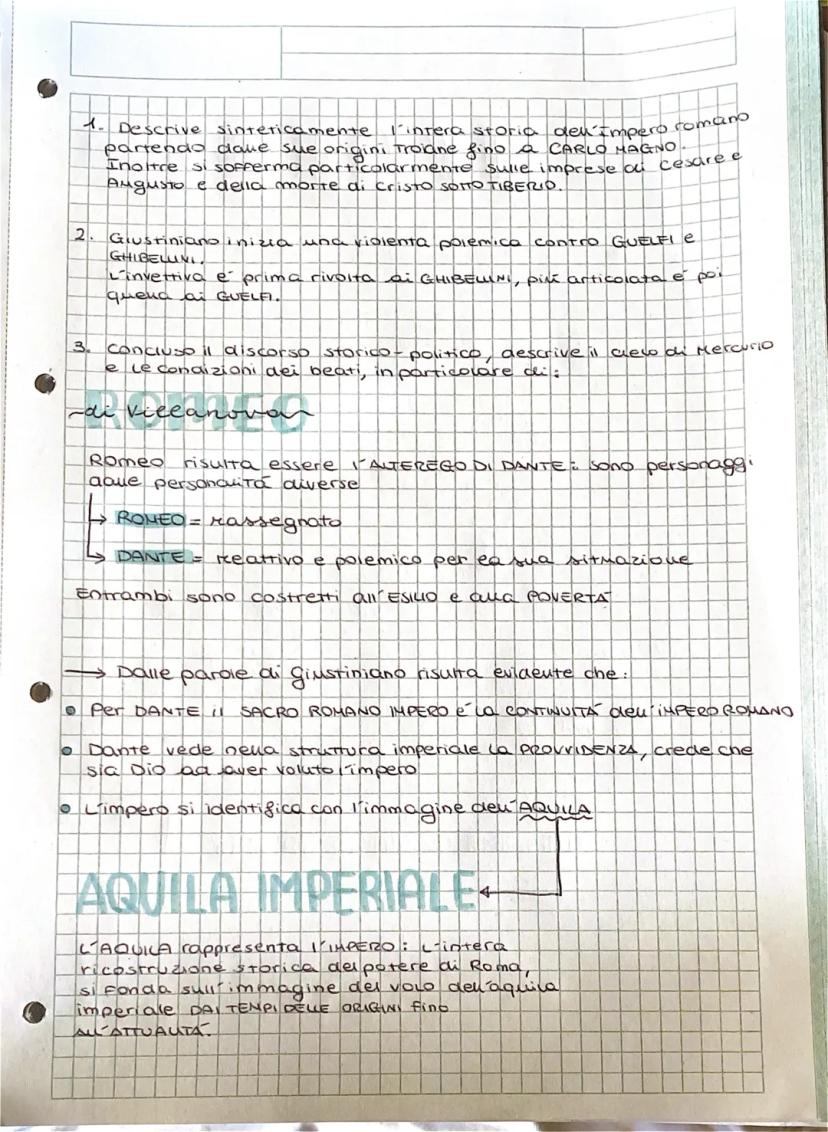 1. Descrive sinteticamente l'intera storia dell'Impero romano
partendo dalle sue origini Troiane fino a CARLO MAGNO.
Inoltre si sofferma particolarmente sulle imprese di Cesare e
Augusto e della morte di Cristo SOTTO TIBERIO.
2. Giustiniano inizia una violenta polemica contro GUELFI e
GHIBELLINI.
L'invettiva é prima rivolta ai GHIBELLINI, piú articolata é poi
quella ai GUELFI.
3. Concluso il discorso storico-politico, descrive il cielo di Mercurio
e le condizioni dei beati, in particolare di:
ROMEO
~di Villanova~
Romeo risulta essere l'ALTEREGO DI DANTE: sono personaggi
dalle personalitá diverse
→ ROMEO = rassegnato
→ DANTE = reattivo e polemico per la sua situazione
Entrambi sono costretti all'ESILIO e alla POVERTÁ
→ Dalle parole di Giustiniano risulta evidente che:
• Per DANTE il SACRO ROMANO IMPERO É LA CONTINUITÁ dell'IMPERO ROMANO
• Dante vede nella struttura imperiale LA PROVVIDENZA, crede che
sia Dio ad aver voluto l'impero
• L'impero si identifica con l'immagine dell'AQUILA
AQUILA IMPERIALE
L'AQUILA rappresenta l'IMPERO: L'intera
ricostruzione storica del potere di Roma,
si fonda sull'immagine del volo dell'aquila
imperiale DAI TEMPI DELLE ORIGINI fino
ALL'ATTUALITÁ.